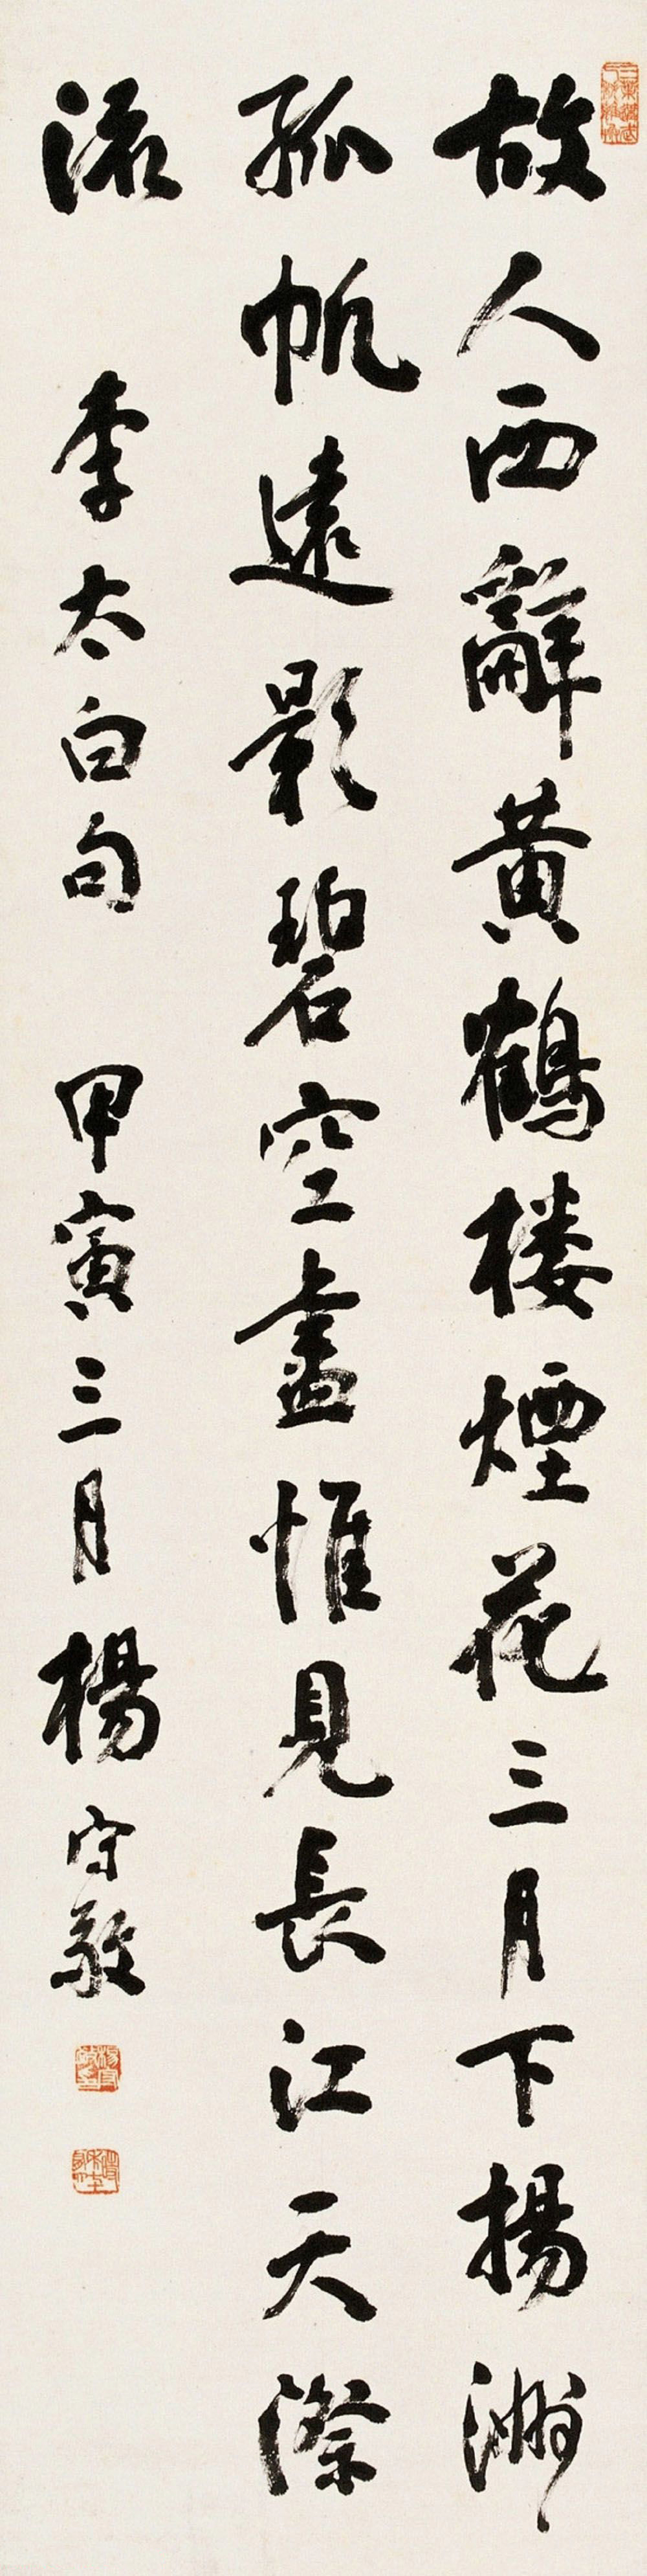 故人西辭黄鶴楼煙花三月下揚洲
孤帆遠影碧空盡惟見長江天際
流 李太白句 甲寅三月楊守敬